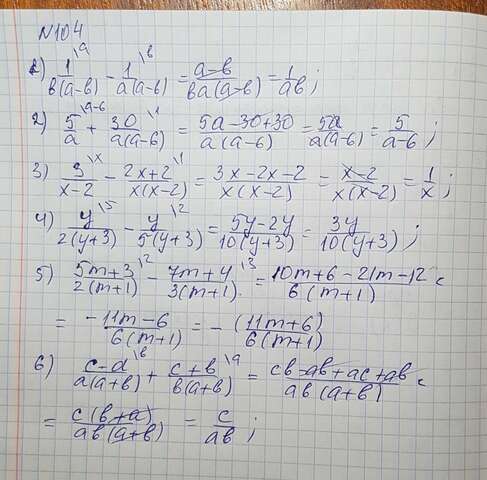 N104
1) 1/b(a-b) \a - 1/a(a-b) \b = a-b/ba(a-b) = 1/ab ;
2) 5/a \a-6 + 30/a(a-6) \1 = 5a-30+30/a(a-6) = 5a/a(a-6) = 5/a-6 ;
3) 3/x-2 \x - 2x+2/x(x-2) \1 = 3x-2x-2/x(x-2) = x-2/x(x-2) = 1/x ;
4) y/2(y+3) \5 - y/5(y+3) \2 = 5y-2y/10(y+3) = 3y/10(y+3) ;
5) 5m+3/2(m+1) \2 - 7m+4/3(m+1) \3 = 10m+6-21m-12/6(m+1) =
= -11m-6/6(m+1) = - (11m+6)/6(m+1)
6) c-a/a(a+b) \b + c+b/b(a+b) \a = cb-ab+ac+ab/ab(a+b) =
= c(b+a)/ab(a+b) = c/ab ;